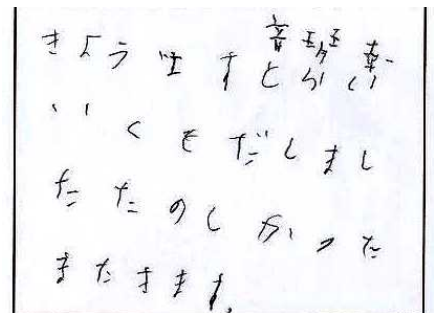 きょうはすと
いくをだしまし
たたのしかった
またきます。